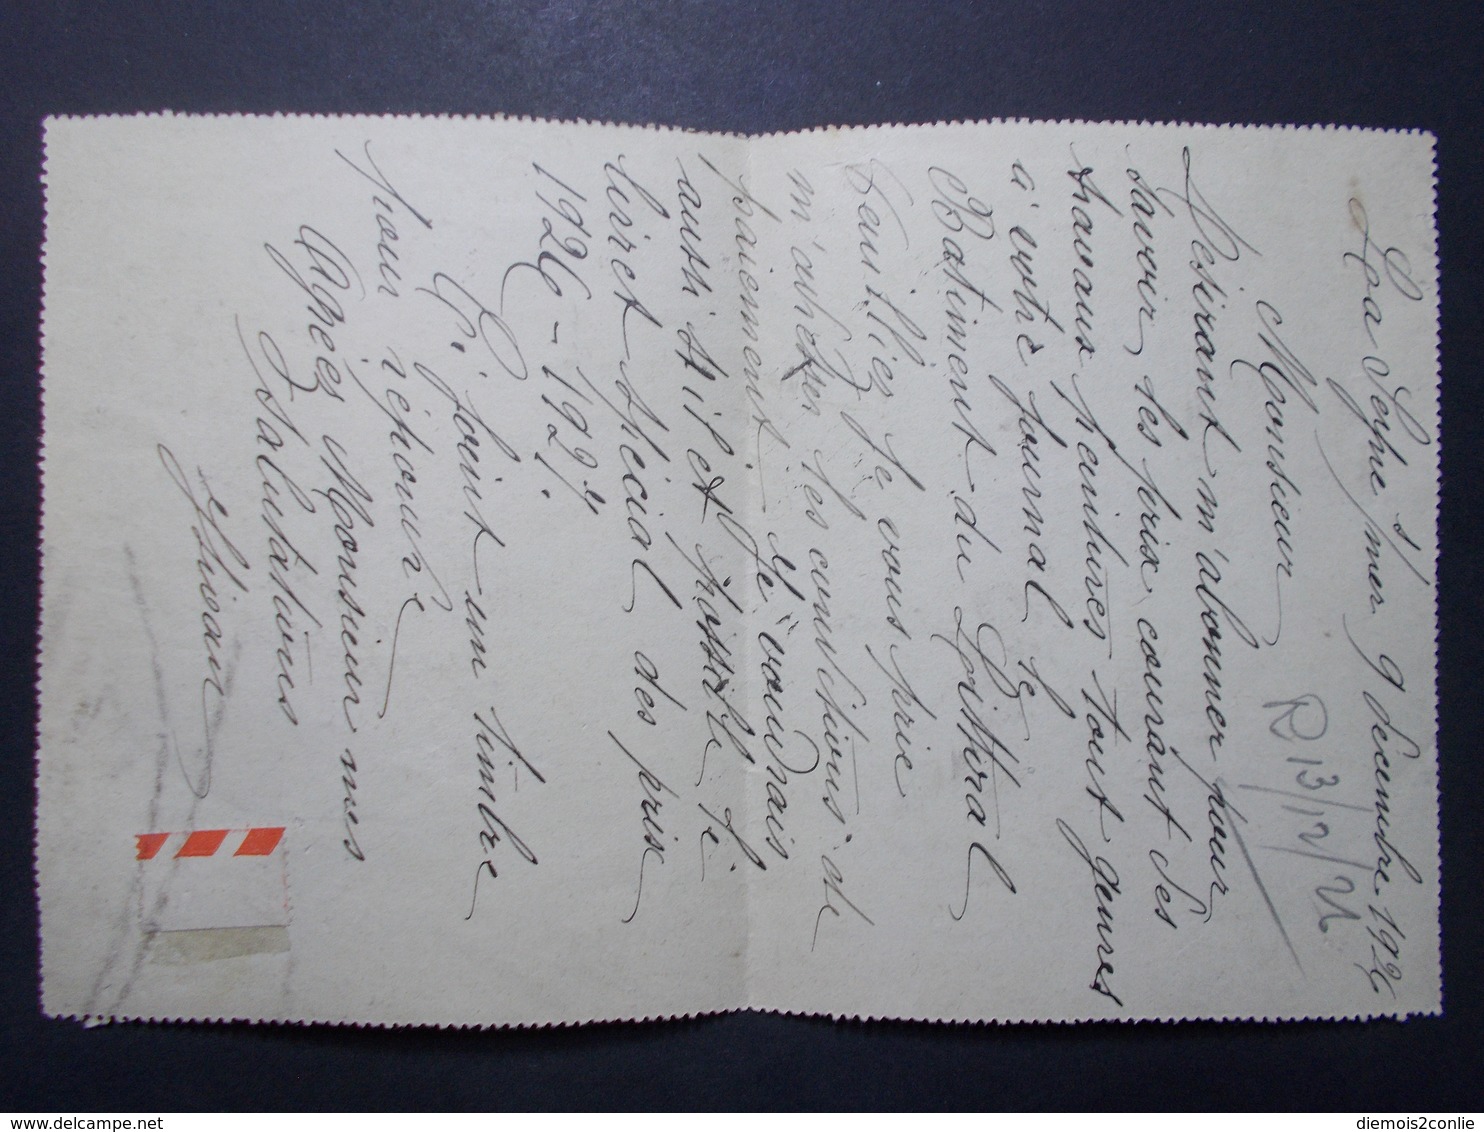 La Seyne s/mer 9 Décembre 1926
Monsieur
R 13/12/26
Desirant m'abonner pour
savoir les prix courant des
travaux peintures tout genres
à votre journal le
Batiment du Littoral
Veuillez je vous prie
m'aviser les conditions de
paiement. Je voudrais
aussi s'il et possible le
livret spécial des prix
1926-1927.
Ci joint un timbre
pour réponse
Agrées Monsieur mes
Salutations
diemois2conlie